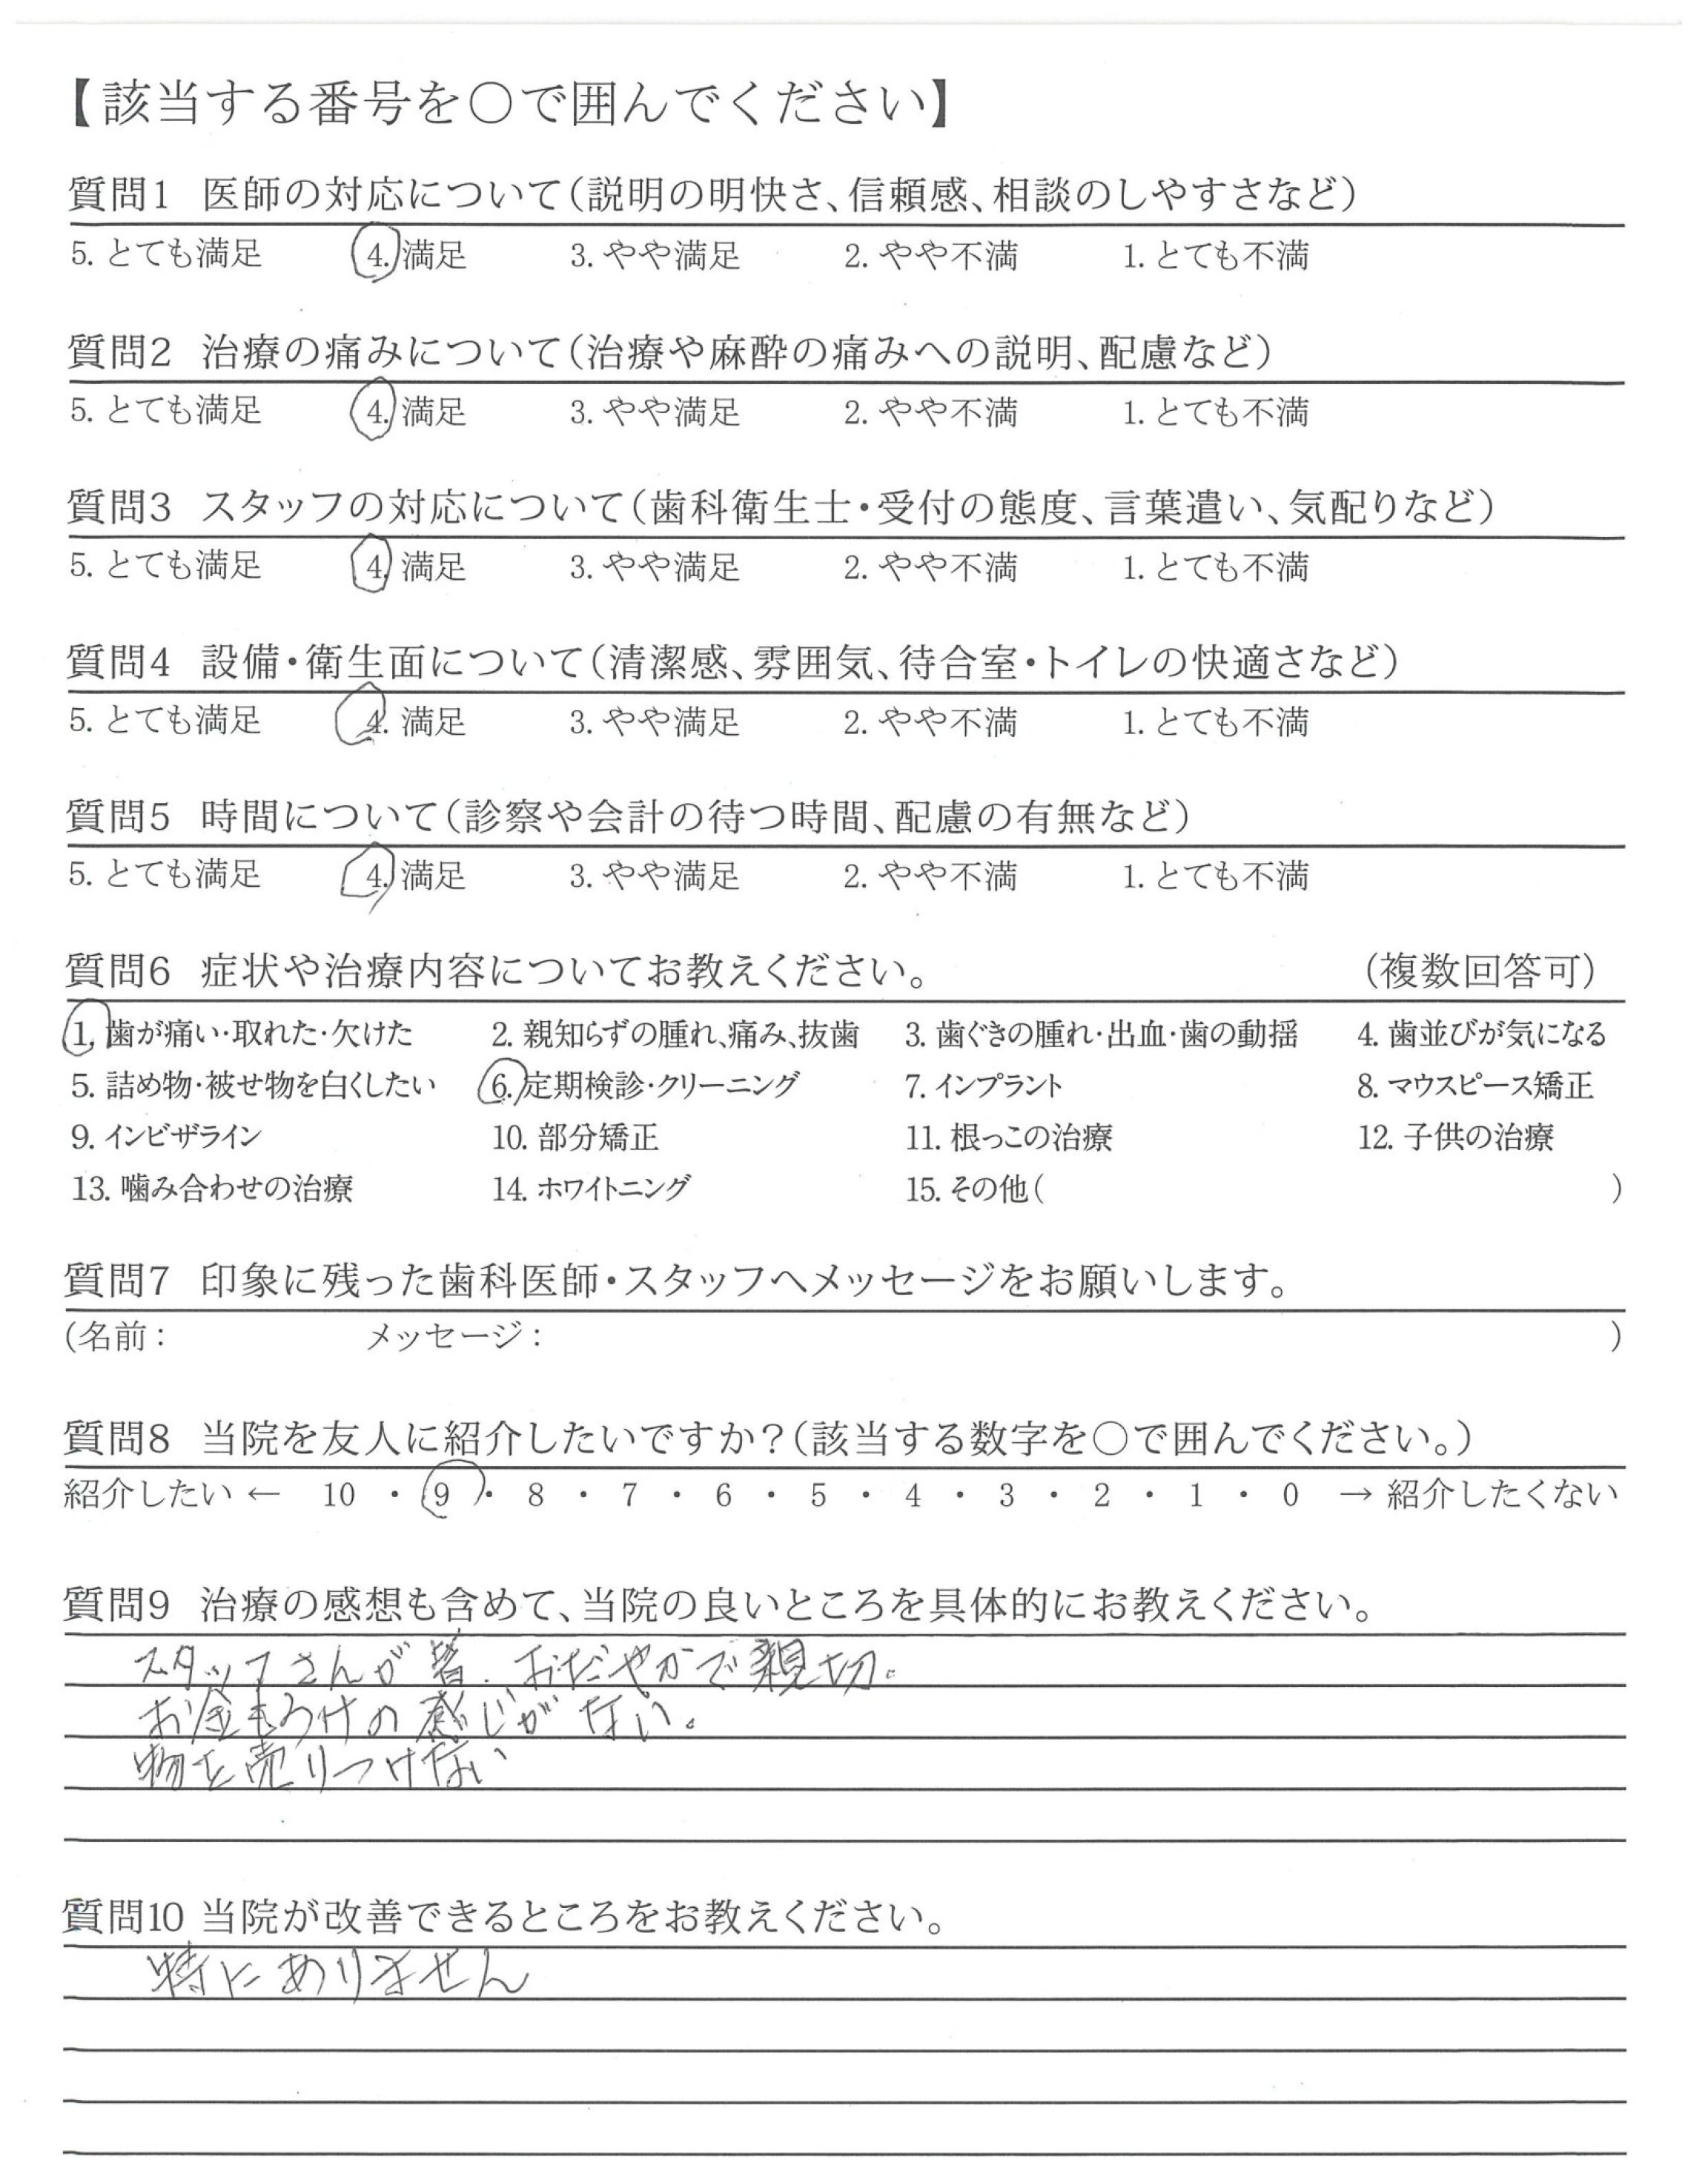 【該当する番号を○で囲んでください】
質問1 医師の対応について(説明の明快さ、信頼感、相談のしやすさなど)
5. とても満足 4. 満足 3. やや満足 2. やや不満 1. とても不満
質問2 治療の痛みについて(治療や麻酔の痛みへの説明、配慮など)
5. とても満足 4. 満足 3. やや満足 2. やや不満 1. とても不満
質問3 スタッフの対応について(歯科衛生士・受付の態度、言葉遣い、気配りなど)
5. とても満足 4. 満足 3. やや満足 2. やや不満 1. とても不満
質問4 設備・衛生面について(清潔感、雰囲気、待合室・トイレの快適さなど)
5. とても満足 4. 満足 3. やや満足 2. やや不満 1. とても不満
質問5 時間について(診察や会計の待つ時間、配慮の有無など)
5. とても満足 4. 満足 3. やや満足 2. やや不満 1. とても不満
質問6 症状や治療内容についてお教えください。 (複数回答可)
1. 歯が痛い・取れた・欠けた 2. 親知らずの腫れ、痛み、抜歯 3. 歯ぐきの腫れ・出血・歯の動揺 4. 歯並びが気になる
5. 詰め物・被せ物を白くしたい 6. 定期検診・クリーニング 7. インプラント 8. マウスピース矯正
9. インビザライン 10. 部分矯正 11. 根っこの治療 12. 子供の治療
13. 噛み合わせの治療 14. ホワイトニング 15. その他( )
質問7 印象に残った歯科医師・スタッフへメッセージをお願いします。
(名前: メッセージ: )
質問8 当院を友人に紹介したいですか?(該当する数字を○で囲んでください。)
紹介したい ← 10 ・ 9 ・ 8 ・ 7 ・ 6 ・ 5 ・ 4 ・ 3 ・ 2 ・ 1 ・ 0 → 紹介したくない
質問9 治療の感想も含めて、当院の良いところを具体的にお教えください。
スタッフさんが皆、おだやかで親切。
お金もうけの感じがない。
物を売りつけない
質問10 当院が改善できるところをお教えください。
特にありません